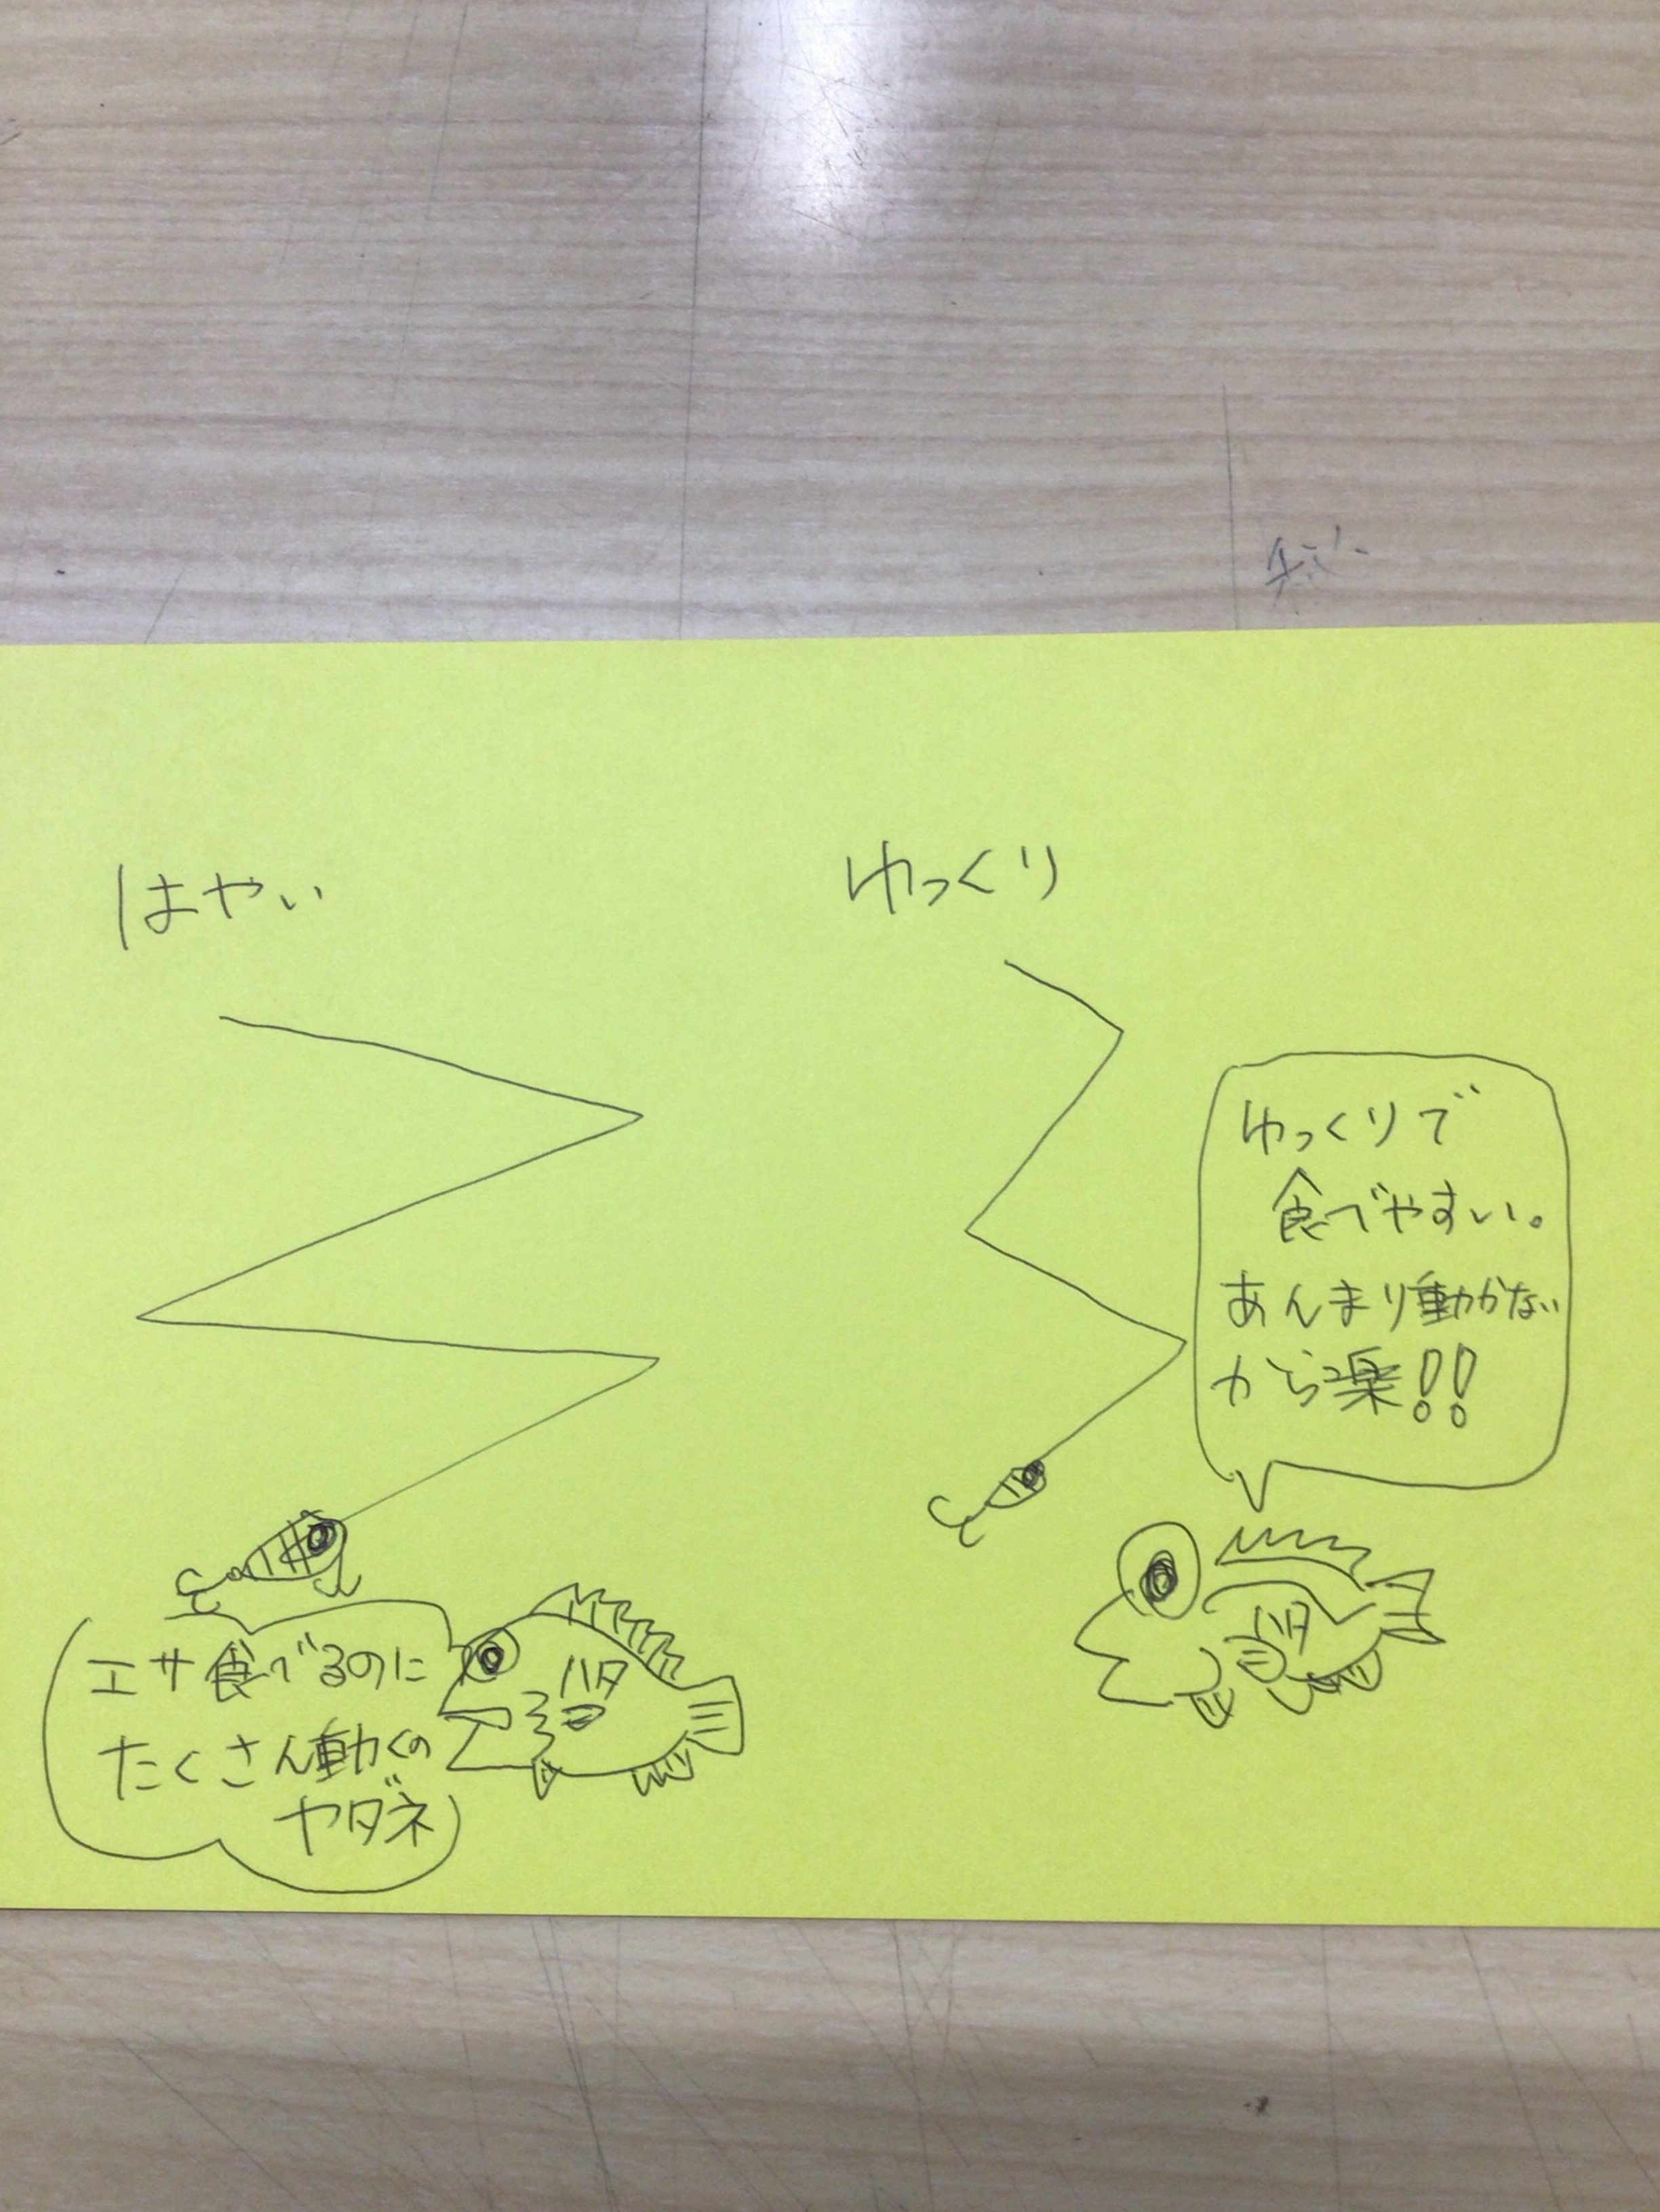 はやい
エサ食べるのに
たくさん動くの
ヤダネ
ハタ
ゆっくり
ゆっくりで
食べやすい。
あんまり動かない
から楽!!
ハタ